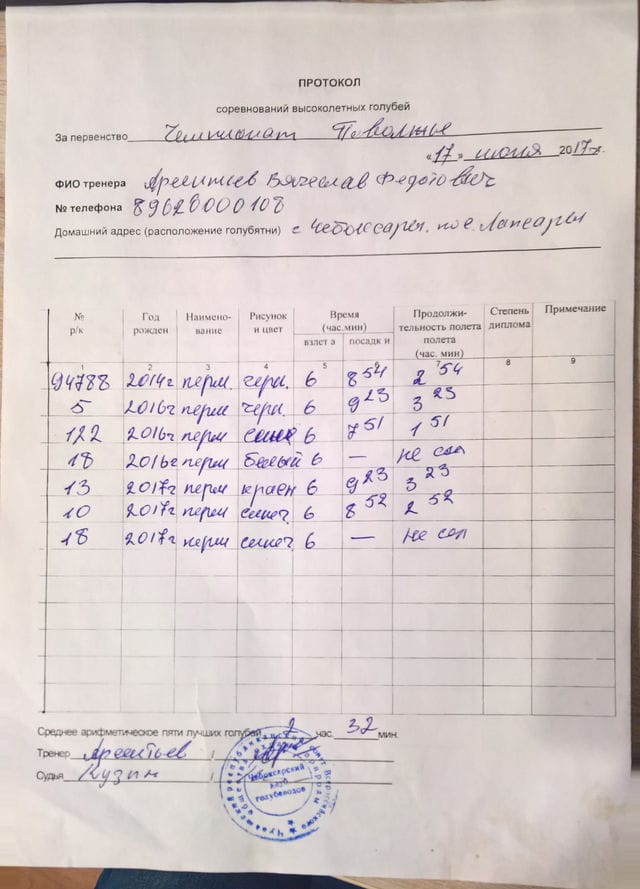 ПРОТОКОЛ
соревнований высоколетных голубей
За первенство Чемпионат Поволжье
«17» июня 2017г.
ФИО тренера Арсентьев Вячеслав Федотович
№ телефона 89620000108
Домашний адрес (расположение голубятни) г Чебоксары. пос. Лапсары
№ р/к Год рожден Наимено-вание Рисунок и цвет Время (час.мин) взлет а посадк и Продолжи-тельность полета полета (час. мин) Степень диплома Примечание
1 2 3 4 5 6 7 8 9
94788 2014г перм. черн. 6 8 54 2 54
5 2016г перм черн. 6 9 23 3 23
122 2016г перм 6 7 51 1 51
18 2016г перм белый 6 — не сел
13 2017г перм красн 6 9 23 3 23
10 2017г перм синеч. 6 8 52 2 52
18 2017г перм синеч. 6 — не сел
Среднее арифметическое пяти лучших голубей 2 час. 32 мин.
Тренер Арсентьев / /
Судья Кузин /
Чебоксарский клуб голубеводов